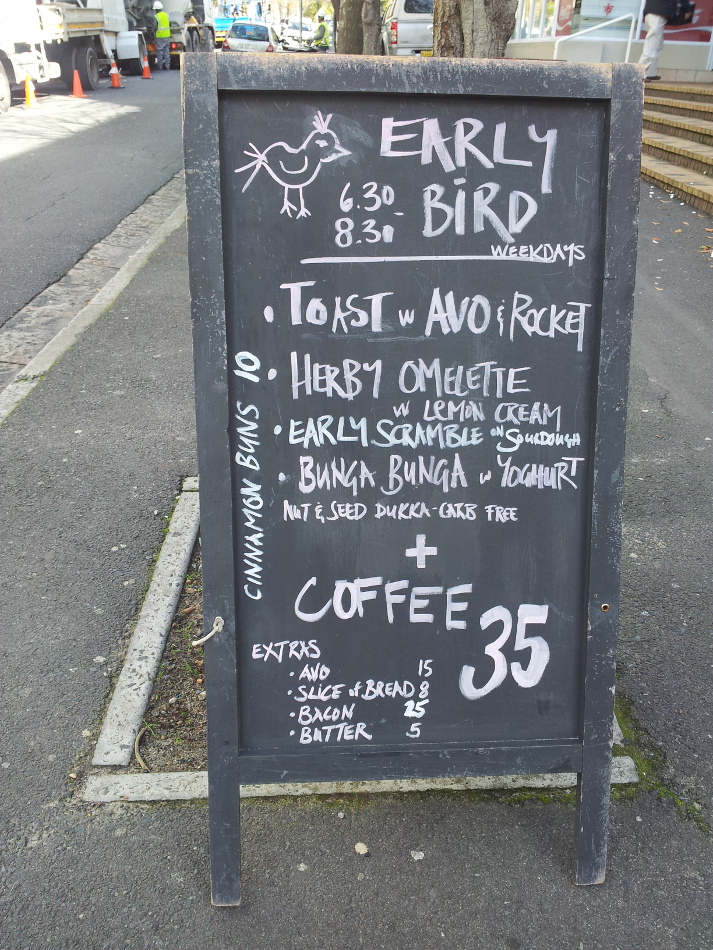 EARLY
6.30 - BIRD
8.30
WEEKDAYS
• TOAST w AVO & ROCKET
• HERBY OMELETTE
w LEMON CREAM
• EARLY SCRAMBLE ON SOURDOUGH
• BUNGA BUNGA w YOGHURT
NUT & SEED DUKKA - CARB FREE
+
COFFEE 35
CINNAMON BUNS 10
EXTRAS
• AVO 15
• SLICE of BREAD 8
• BACON 25
• BUTTER 5